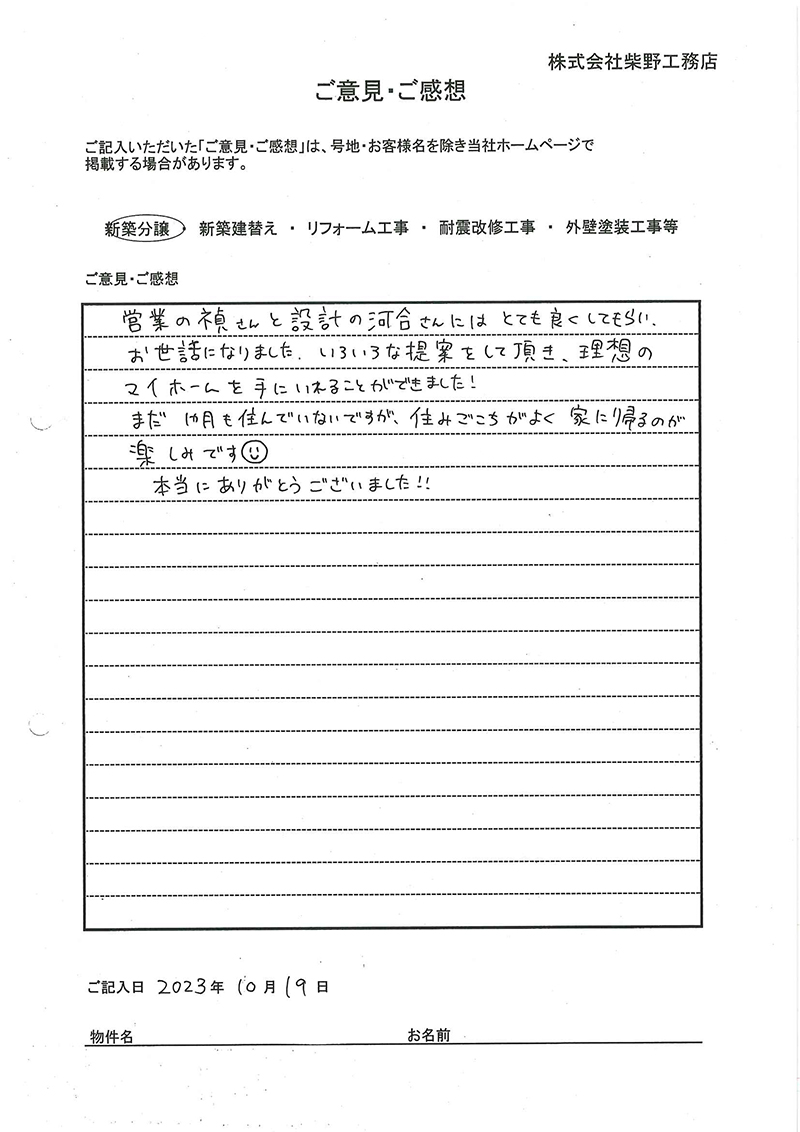 株式会社柴野工務店
ご意見・ご感想
ご記入いただいた「ご意見・ご感想」は、号地・お客様名を除き当社ホームページで
掲載する場合があります。
新築分譲 ・ 新築建替え ・ リフォーム工事 ・ 耐震改修工事 ・ 外壁塗装工事等
ご意見・ご感想
営業の禎さんと設計の河合さんには とても良くしてもらい、
お世話になりました。いろいろな提案をして頂き、理想の
マイホームを手にいれることができました!
まだ 月も住んでいないですが、住みごこちがよく 家に帰るのが
楽しみです☺
本当にありがとうございました!!
ご記入日 2023年 10月 19日
物件名 お名前